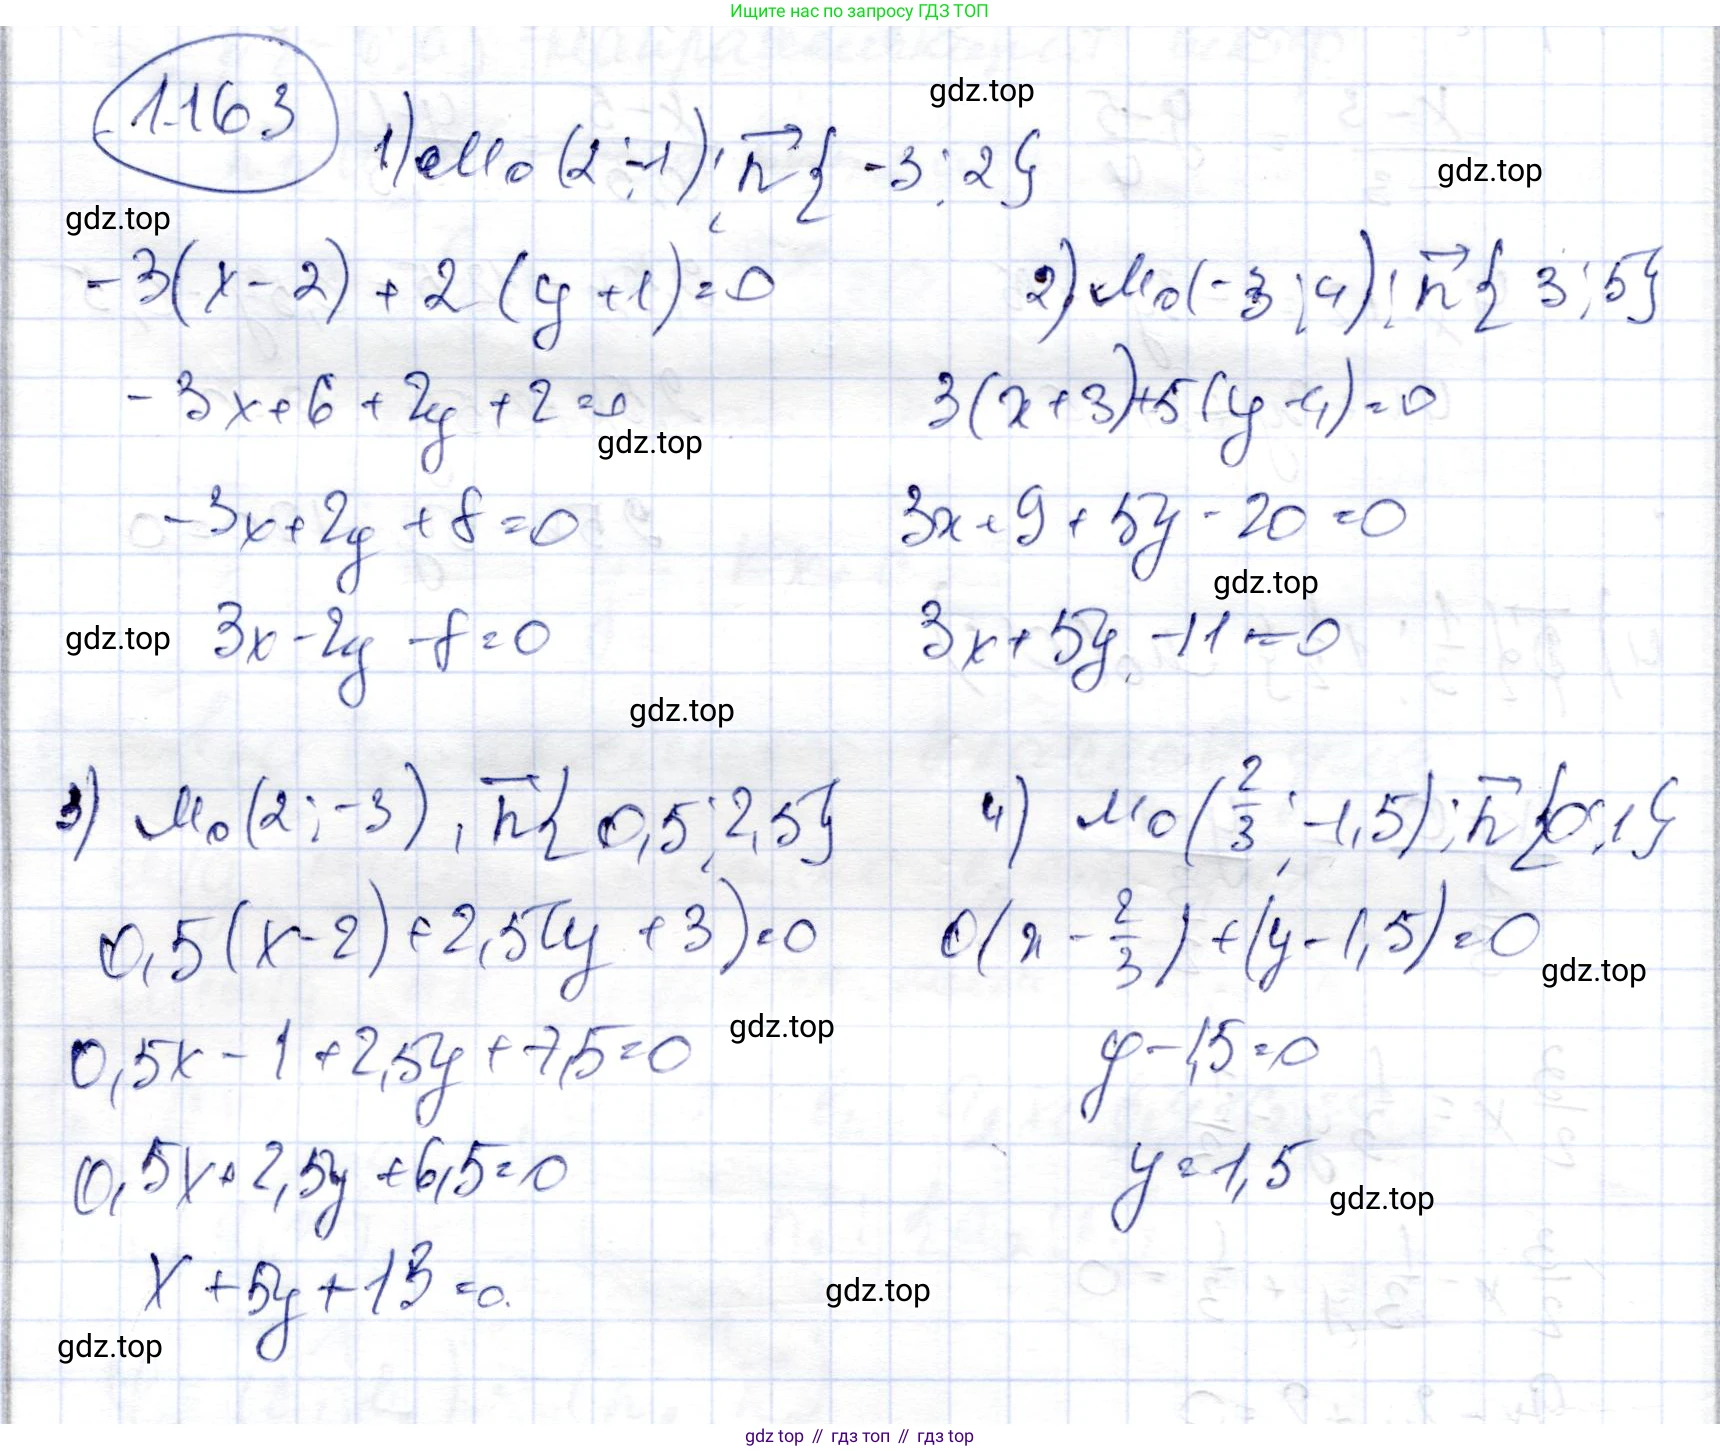 Ищите нас по запросу ГДЗ ТОП
1163
gdz.top
1) M₀(2;-1); n⃗{-3;2}
gdz.top
gdz.top
-3(x-2)+2(y+1)=0
-3x+6+2y+2=0
gdz.top
-3x+2y+8=0
gdz.top
3x-2y-8=0
2) M₀(-3;4); n⃗{3;5}
3(x+3)+5(y-4)=0
3x+9+5y-20=0
gdz.top
3x+5y-11=0
gdz.top
3) M₀(2;-3), n⃗{0,5;2,5}
0,5(x-2)+2,5(y+3)=0
gdz.top
0,5x-1+2,5y+7,5=0
0,5x+2,5y+6,5=0
x+5y+13=0.
gdz.top
gdz.top
4) M₀(2/3;-1,5); n⃗{0;1}
0(x-2/3)+(y-1,5)=0
gdz.top
y-1,5=0
y=1,5
gdz.top
gdz.top // гдз топ // гдз top